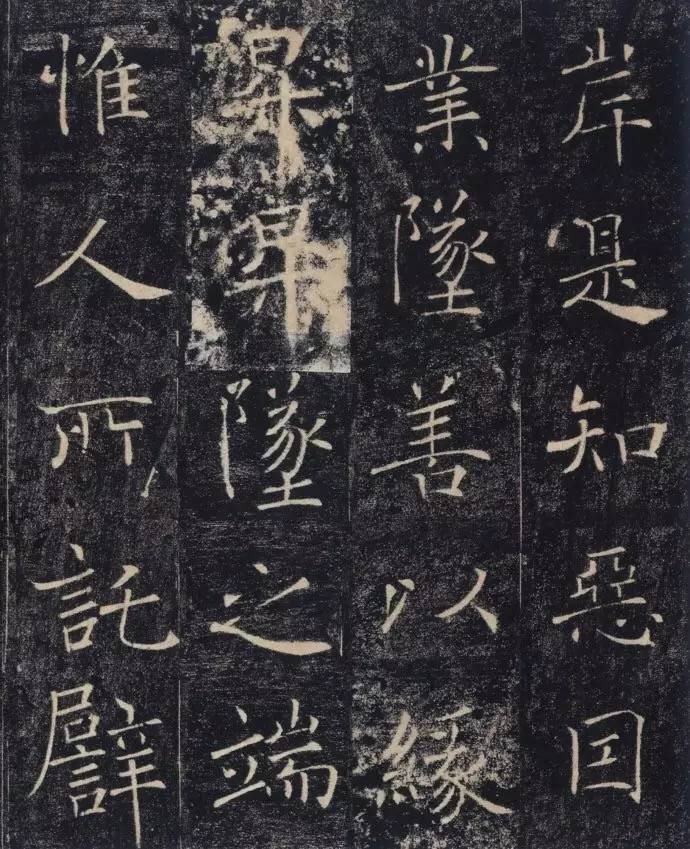 岸是知惡因
業墜善以緣
昇昇墜之端
惟人所託譬